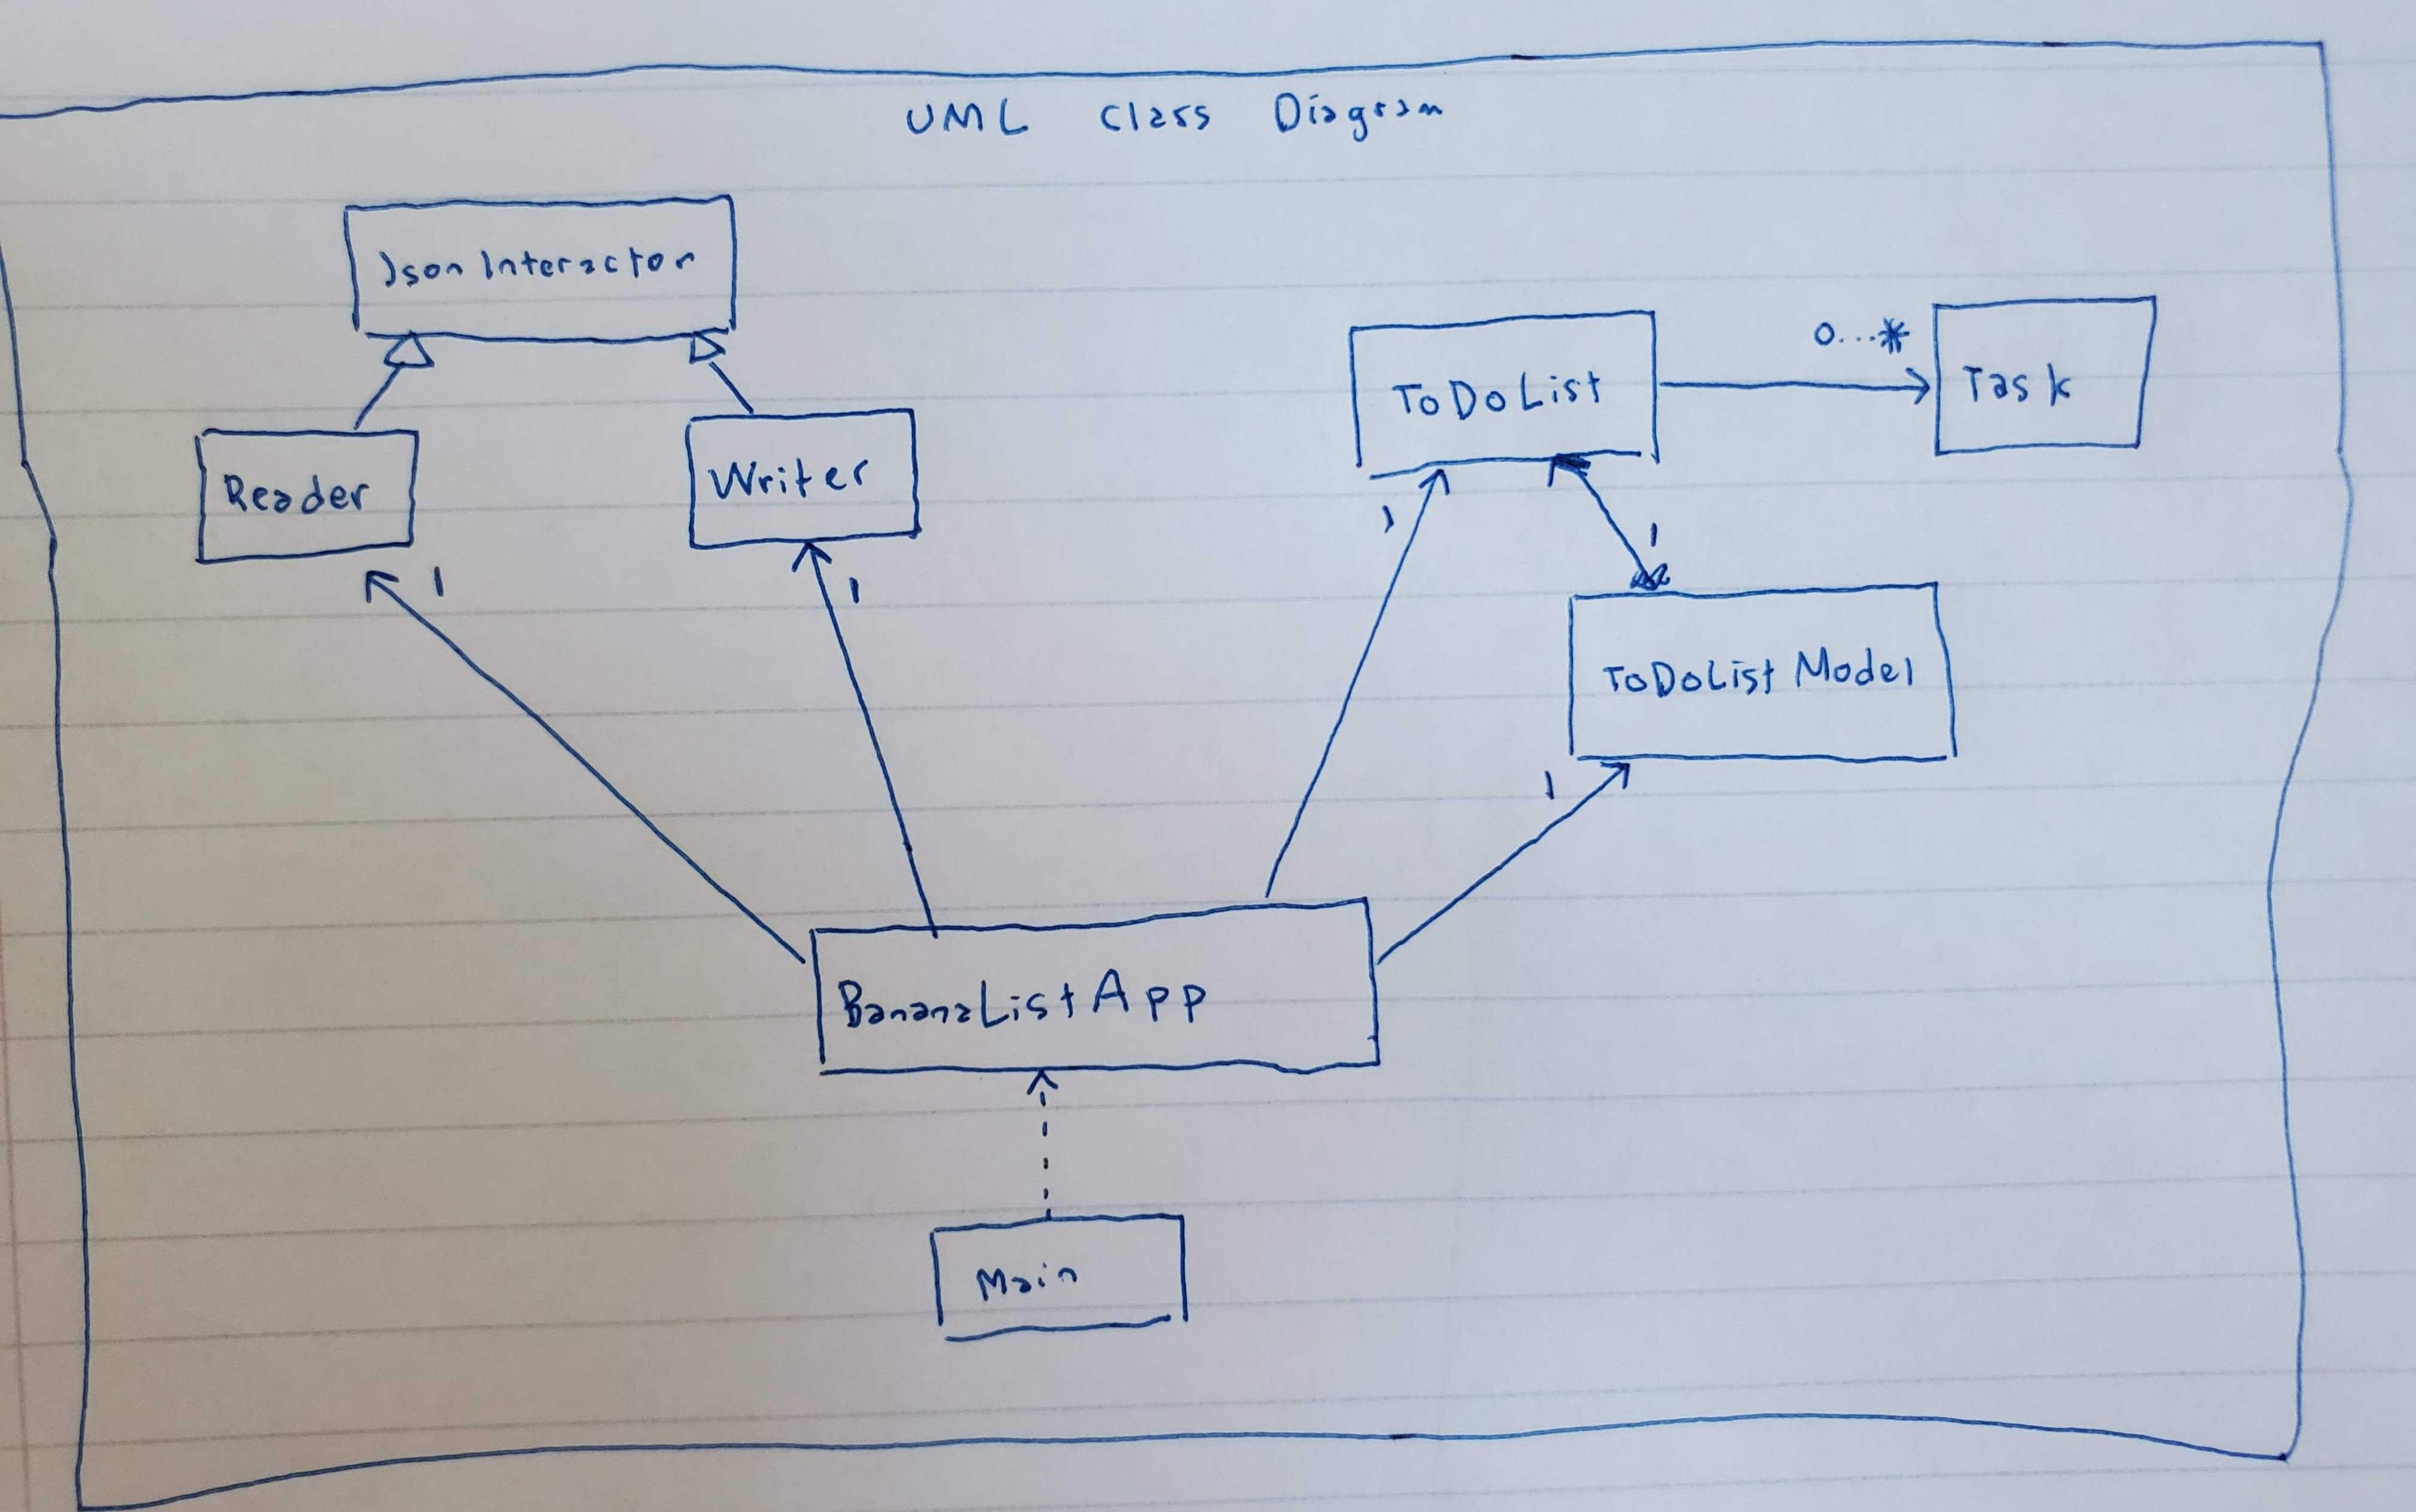 UML Class Diagram
JsonInteractor
Reader
1
Writer
1
ToDoList
0...*
Task
1
1
ToDoList Model
1
BananaListApp
Main